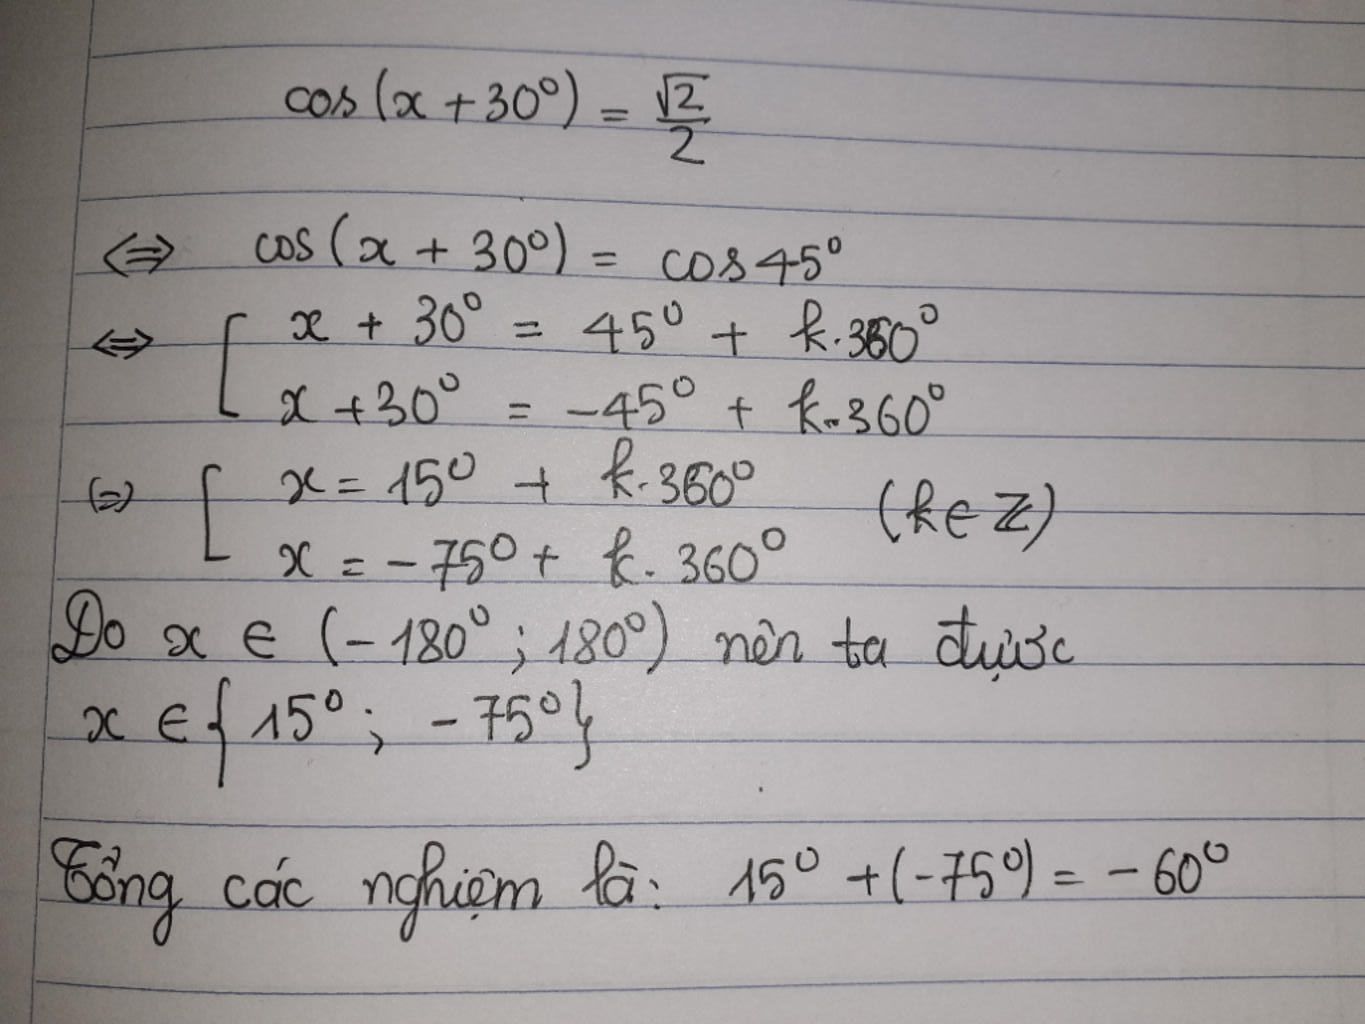 cos(x + 30°) = √2/2
⇔ cos(x + 30°) = cos 45°
⇔ [ x + 30° = 45° + k.360°
x + 30° = -45° + k.360°
(=) [ x = 15° + k.360°
x = -75° + k.360° (k ∈ Z)
Do x ∈ (-180°; 180°) nên ta được
x ∈ {15°; -75°}
Tổng các nghiệm là: 15° + (-75°) = -60°